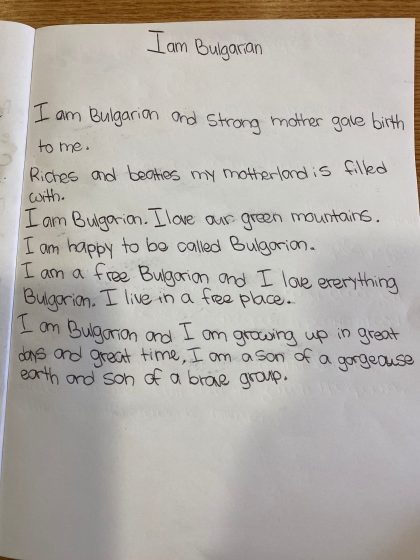 I am Bulgarian
I am Bulgarian and strong mother gave birth
to me.
Riches and beaties my motherland is filled
with.
I am Bulgarian. I love our green mountains.
I am happy to be called Bulgarian.
I am a free Bulgarian and I love everything
Bulgarian. I live in a free place.
I am Bulgarian and I am growing up in great
days and great time, I am a son of a gorgeause
earth and son of a brave group.